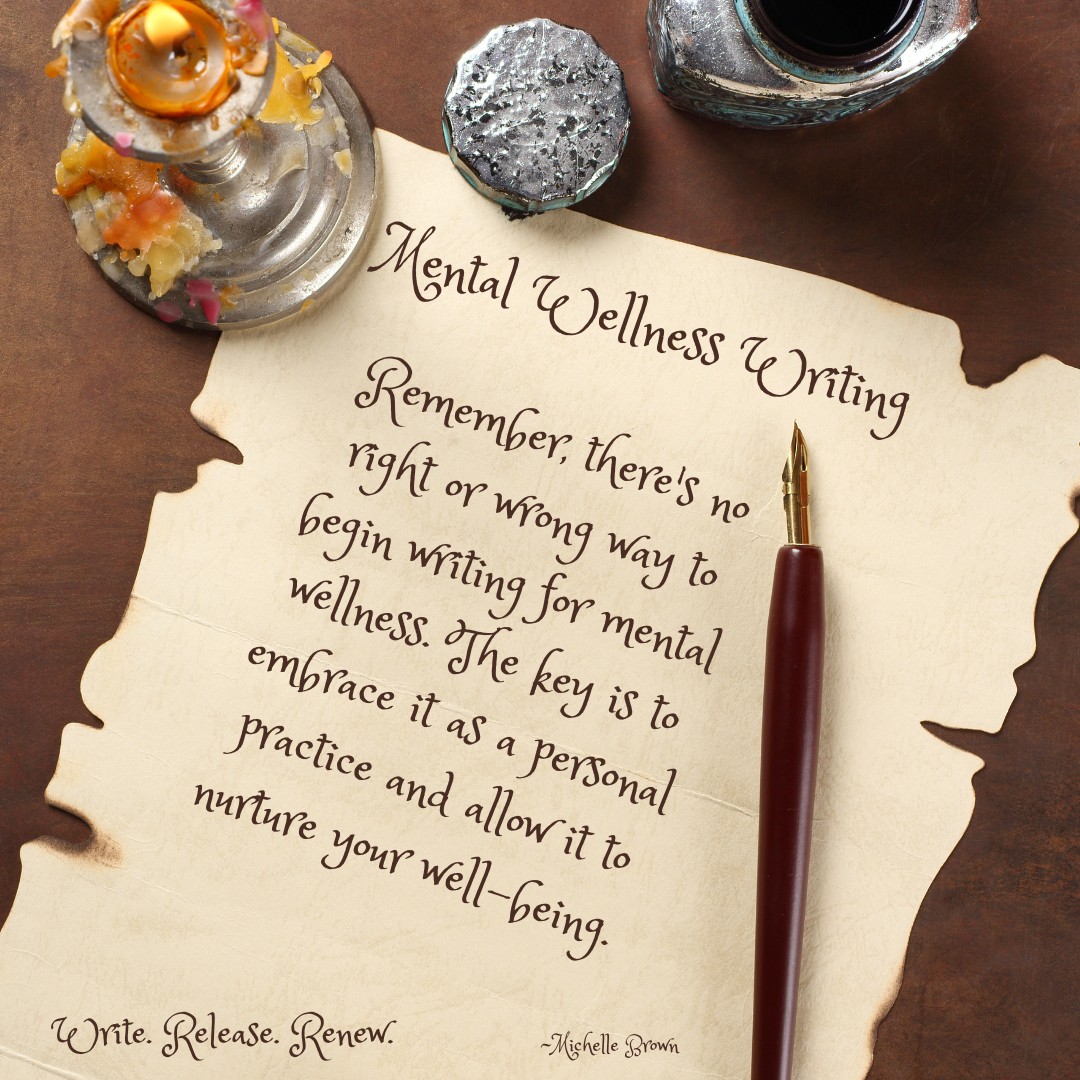 Mental Wellness Writing
Remember, there's no
right or wrong way to
begin writing for mental
wellness. The key is to
embrace it as a personal
practice and allow it to
nurture your well-being.
Write. Release. Renew.
~Michelle Brown